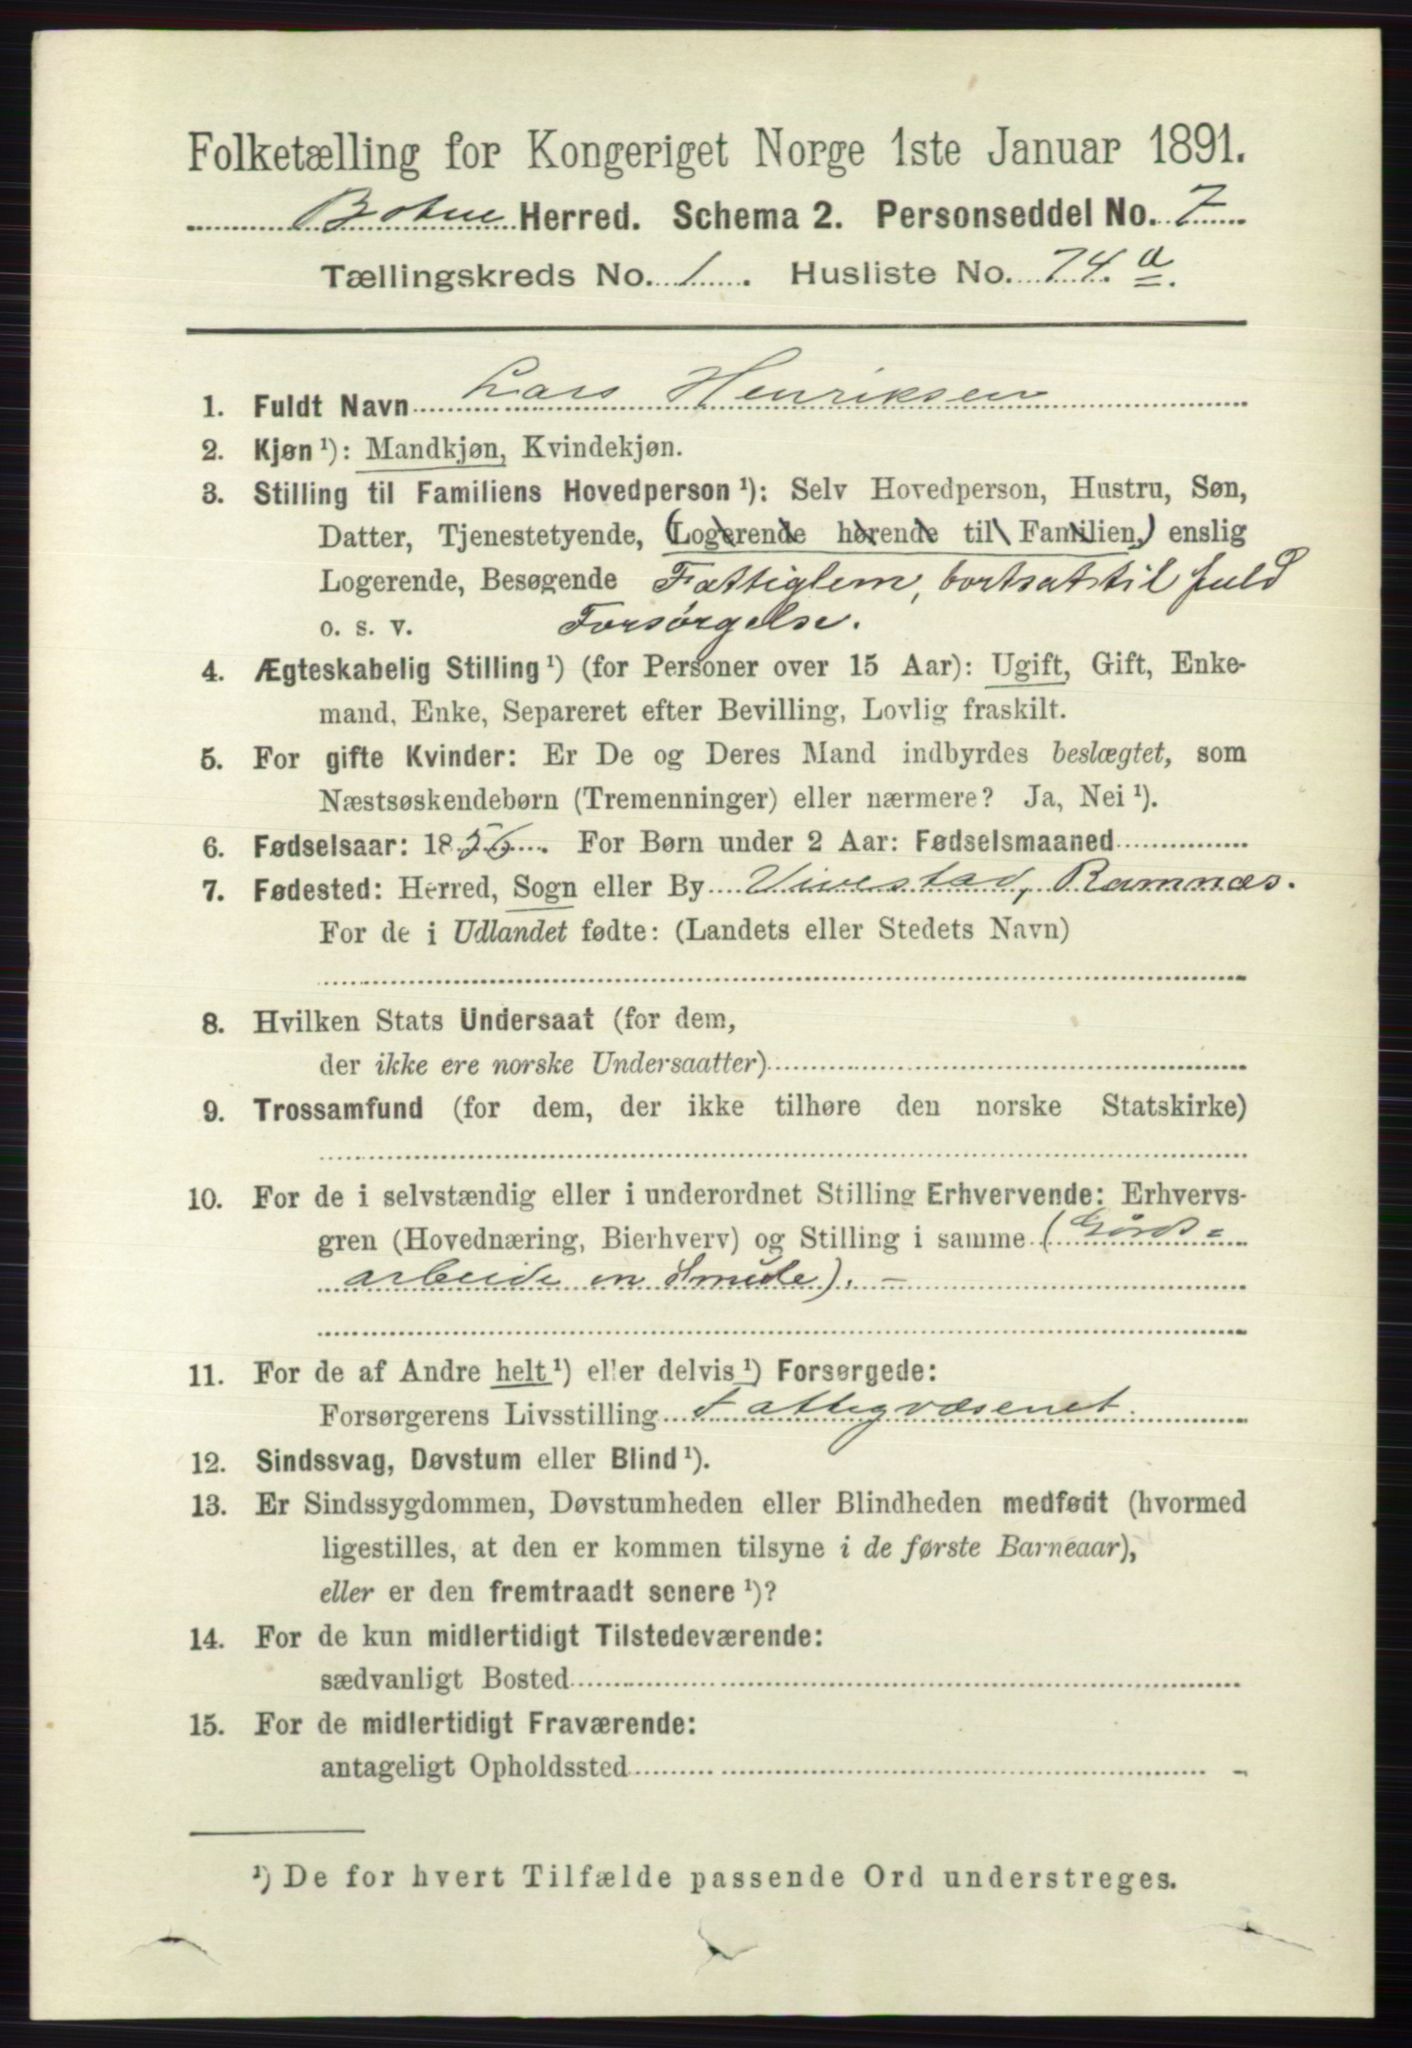 Folketælling for Kongeriget Norge 1ste Januar 1891.
Botne Herred. Schema 2. Personseddel No. 7
Tællingskreds No. 1. Husliste No. 74.a.
1. Fuldt Navn Lars Henriksen
2. Kjøn ¹): Mandkjøn, Kvindekjøn.
3. Stilling til Familiens Hovedperson ¹): Selv Hovedperson, Hustru, Søn,
Datter, Tjenestetyende, (Logerende hørende til Familien,) enslig
Logerende, Besøgende Fattiglem, bortsat til fuld
o. s. v. Forsørgelse.
4. Ægteskabelig Stilling ¹) (for Personer over 15 Aar): Ugift, Gift, Enke-
mand, Enke, Separeret efter Bevilling, Lovlig fraskilt.
5. For gifte Kvinder: Er De og Deres Mand indbyrdes beslægtet, som
Næstsøskendebørn (Tremenninger) eller nærmere? Ja, Nei ¹).
6. Fødselsaar: 1856. For Børn under 2 Aar: Fødselsmaaned
7. Fødested: Herred, Sogn eller By Vivestad, Ramnæs.
For de i Udlandet fødte: (Landets eller Stedets Navn)
8. Hvilken Stats Undersaat (for dem,
der ikke ere norske Undersaatter)
9. Trossamfund (for dem, der ikke tilhøre den norske Statskirke)
10. For de i selvstændig eller i underordnet Stilling Erhvervende: Erhvervs-
gren (Hovednæring, Bierhverv) og Stilling i samme (Gårds=
arbeide en Smule). -
11. For de af Andre helt ¹) eller delvis ¹) Forsørgede:
Forsørgerens Livsstilling Fattigvæsenet.
12. Sindssvag, Døvstum eller Blind ¹).
13. Er Sindssygdommen, Døvstumheden eller Blindheden medfødt (hvormed
ligestilles, at den er kommen tilsyne i de første Barneaar),
eller er den fremtraadt senere ¹)?
14. For de kun midlertidigt Tilstedeværende:
sædvanligt Bosted
15. For de midlertidigt Fraværende:
antageligt Opholdssted
¹) De for hvert Tilfælde passende Ord understreges.